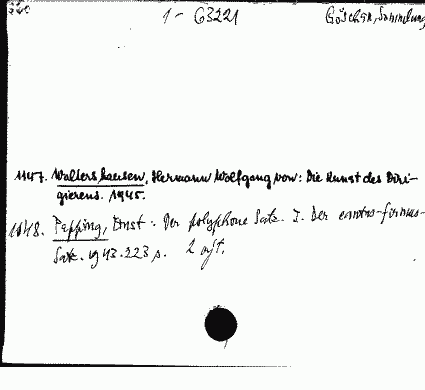 1 - G3221 Göschen, Sammlung
1147. Waltershausen, Hermann Wolfgang von: Die Kunst des Diri-
gierens. 1945.
1148. Pepping, Ernst: Der polyphone Satz. I. Der cantus-firmus-
Satz. 1943. 223 s. 2 afl.